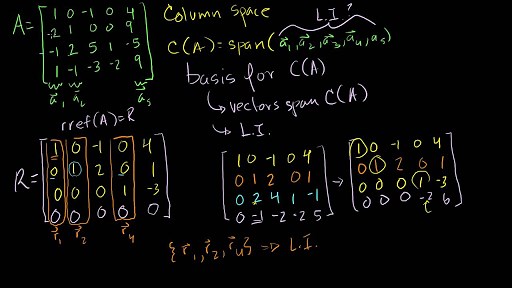 A = [1 0 -1 0 4
2 1 0 0 9
-1 2 5 1 -5
1 -1 -3 -2 9]
a⃗₁ a⃗₂ a⃗₅
Column space L.I.?
C(A) = span(a⃗₁, a⃗₂, a⃗₃, a⃗₄, a₅)
basis for C(A)
↳ vectors span C(A)
↳ L.I.
rref(A) = R
R = [1 0 -1 0 4
0 1 2 0 1
0 0 0 1 -3
0 0 0 0 0]
r⃗₁ r⃗₂ r⃗₄
[1 0 -1 0 4
0 1 2 0 1
0 2 4 1 -1
0 -1 -2 -2 5]
→ [1 0 -1 0 4
0 1 2 0 1
0 0 0 1 -3
0 0 0 -2 6]
{r⃗₁, r⃗₂, r⃗₄} ⇒ L.I.